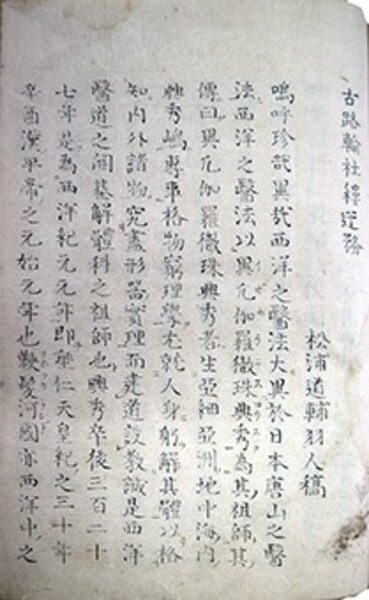 古路輪杜穆邃務
松浦道輔羽人稿
嗚呼珍哉異哉西洋之醫法大異於日本唐山之醫
法西洋之醫法以異儿伽羅微珠興秀為其祖師其
傳曰異儿伽羅微珠興秀者生亞細亞洲地中海内
興秀嶋專平格物窮理學尤就人身躬解其體以格
知内外諸物究盡形器實理而建道設教誠是西洋
醫道之開基解體科之祖師也興秀卒後三百二十
七年是為西洋紀元元年即垂仁天皇紀之三十年
辛酉漢平帝之元始元年也熱髪河國亦西洋中之